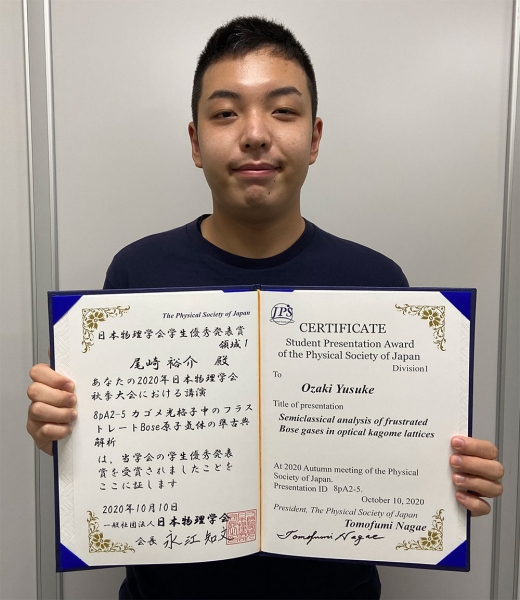 The Physical Society of Japan
日本物理学会学生優秀発表賞
領域1
尾﨑 裕介 殿
あなたの2020年日本物理学会
秋季大会における講演
8pA2-5 カゴメ光格子中のフラス
トレートBose原子気体の準古典
解析
は、当学会の学生優秀発表
賞を受賞されましたことを
ここに証します
2020年10月10日
一般社団法人日本物理学会
会長 永江知文
JPS
CERTIFICATE
Student Presentation Award
of the Physical Society of Japan
Division1
To
Ozaki Yusuke
Title of presentation
Semiclassical analysis of frustrated
Bose gases in optical kagome lattices
At 2020 Autumn meeting of the Physical
Society of Japan.
Presentation ID 8pA2-5.
October 10, 2020
President, The Physical Society of Japan
Tomofumi Nagae
Tomofumi Nagae